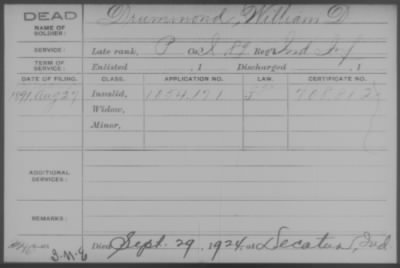 DEAD
NAME OF SOLDIER: Drummond, William D
SERVICE: Late rank, P Co. I, 89 Reg't Ind Inf
TERM OF SERVICE: Enlisted , 1 Discharged , 1
DATE OF FILING. CLASS. APPLICATION NO. LAW. CERTIFICATE NO.
1891, Aug 27 Invalid, 1054,171
Widow,
Minor,
ADDITIONAL SERVICES:
REMARKS:
Died Sept. 29, 1924, at Decatur, Ind